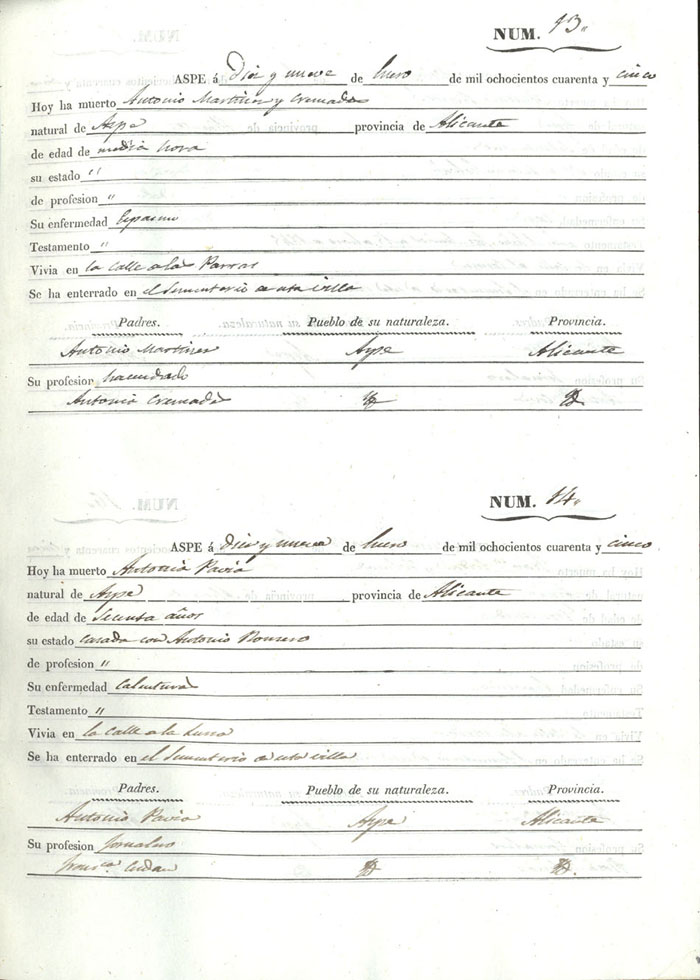 NUM. 13.
ASPE á Diez y nueve de Enero de mil ochocientos cuarenta y cinco
Hoy ha muerto Antonio Martinez y Cremades
natural de Aspe provincia de Alicante
de edad de media hora
su estado "
de profesion "
Su enfermedad Espasmo
Testamento "
Vivia en la Calle de las Parras
Se ha enterrado en el Sementerio de esta villa
Padres. Pueblo de su naturaleza. Provincia.
Antonio Martinez Aspe Alicante
Su profesion hacendado
Antonia Cremades
NUM. 14.
ASPE á diez y nueve de Enero de mil ochocientos cuarenta y cinco
Hoy ha muerto Antonia Pavia
natural de Aspe provincia de Alicante
de edad de años
su estado casada con Antonio Romero
de profesion "
Su enfermedad Calentura
Testamento "
Vivia en la Calle de la
Se ha enterrado en el Sementerio de esta villa
Padres. Pueblo de su naturaleza. Provincia.
Antonio Pavia Aspe Alicante
Su profesion Jornalero